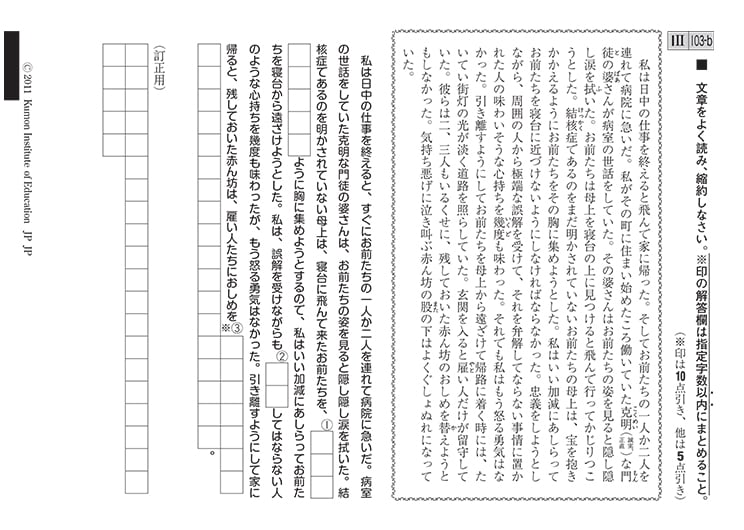 III 103-b
■ 文章をよく読み、縮約しなさい。※印の解答欄は指定字数以内にまとめること。
(※印は10点引き、他は5点引き)
私は日中の仕事を終えると飛んで家に帰った。そしてお前たちの一人か二人を
連れて病院に急いだ。私がその町に住まい始めたころ働いていた克明(誠実、正直)な門
徒の婆さんが病室の世話をしていた。その婆さんはお前たちの姿を見ると隠し隠
し涙を拭いた。お前たちは母上を寝台の上に見つけると飛んで行ってかじりつこ
うとした。結核症であるのをまだ明かされていないお前たちの母上は、宝を抱き
かかえるようにお前たちをその胸に集めようとした。私はいい加減にあしらって
お前たちを寝台に近づけないようにしなければならなかった。忠義をしようとし
ながら、周囲の人から極端な誤解を受けて、それを弁解してならない事情に置か
れた人の味わいそうな心持ちを幾度も味わった。それでも私はもう怒る勇気はな
かった。引き離すようにしてお前たちを母上から遠ざけて帰路に着く時には、た
いてい街灯の光が淡く道路を照らしていた。玄関を入ると雇い人だけが留守して
いた。彼らは二、三人もいるくせに、残しておいた赤ん坊のおしめを替えようと
もしなかった。気持ち悪げに泣き叫ぶ赤ん坊の股の下はよくぐしょぬれになって
いた。
私は日中の仕事を終えると、すぐにお前たちの一人か二人を連れて病院に急いだ。病室
の世話をしていた克明な門徒の婆さんは、お前たちの姿を見ると隠し隠し涙を拭いた。結
核症であるのを明かされていない母上は、寝台に飛んで来たお前たちを、①
ように胸に集めようとするので、私はいい加減にあしらってお前た
ちを寝台から遠ざけようとした。私は、誤解を受けながらも②してはならない人
のような心持ちを幾度も味わったが、もう怒る勇気はなかった。引き離すようにして家に
帰ると、残しておいた赤ん坊は、雇い人たちにおしめを※③
。
(訂正用)
© 2011 Kumon Institute of Education JP JP